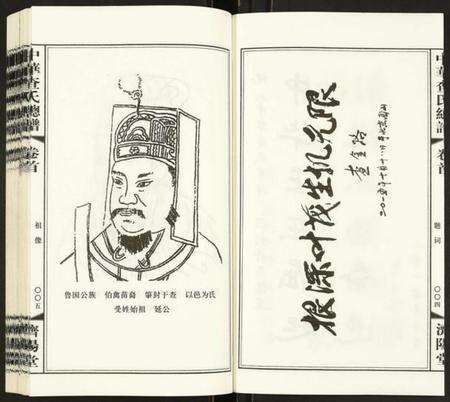 中華查氏總譜
卷首
題詞
〇〇四
濟陽堂
根深叶茂生机无限
中華查氏總譜
卷首
祖像
〇〇五
濟陽堂
鲁国公族 伯禽苗裔 肇封于查 以邑为氏
受姓始祖 延公